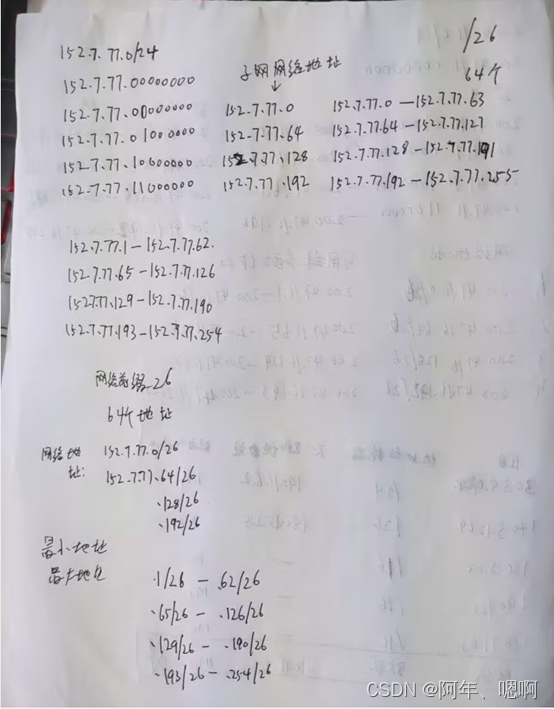 /26
152.7.77.0/24
子网网络地址
↓
64个
152.7.77.00000000
152.7.77.00000000 152.7.77.0 152.7.77.0 — 152.7.77.63
152.7.77.01000000 152.7.77.64 152.7.77.64 — 152.7.77.127
152.7.77.10000000 152.7.77.128 152.7.77.128 — 152.7.77.191
152.7.77.11000000 152.7.77.192 152.7.77.192 — 152.7.77.255
152.7.77.1 — 152.7.77.62.
152.7.77.65 — 152.7.77.126
152.7.77.129 — 152.7.77.190
152.7.77.193 — 152.7.77.254
网络前缀 26
64个地址
网络地址: 152.7.77.0/26
152.7.77.64/26
.128/26
.192/26
最小地址
最大地址
.1/26 — .62/26
.65/26 — .126/26
.129/26 — .190/26
.193/26 — .254/26
CSDN @阿年、嗯啊